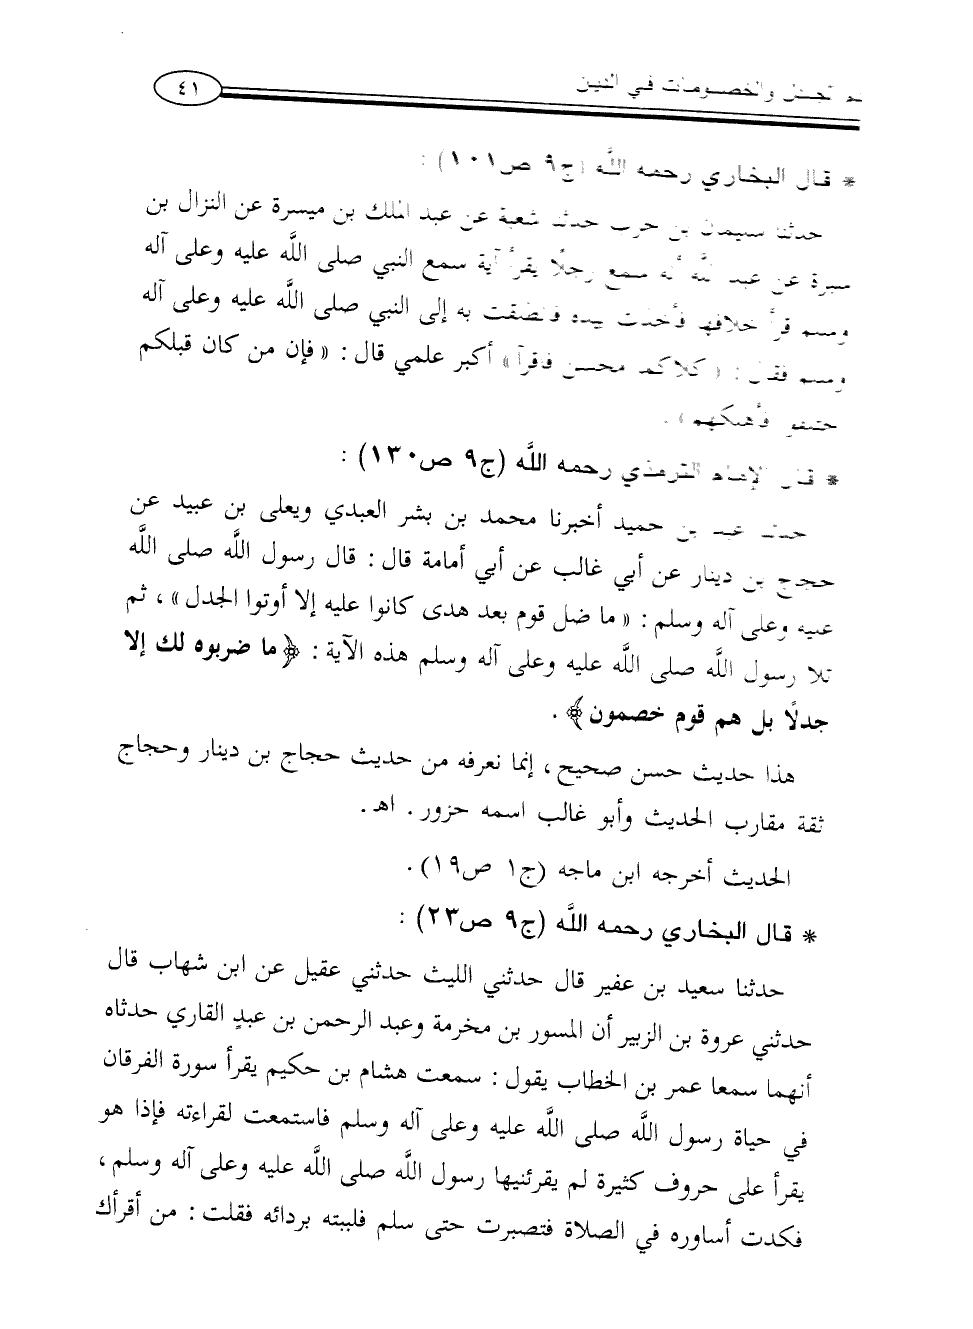 ذم الجدل والخصومات في الدين ٤١
* قال البخاري رحمه اللَّه (ج٩ ص١٠١) :
حدثنا سليمان بن حرب حدثنا شعبة عن عبد الملك بن ميسرة عن النزال بن
سبرة عن عبد اللَّه أنه سمع رجلًا يقرأ آية سمع النبي صلى اللَّه عليه وعلى آله
وسلم قرأ خلافها فأخذت بيده فانطلقت به إلى النبي صلى اللَّه عليه وعلى آله
وسلم فقال : « كلاكما محسن فاقرآ » أكبر علمي قال : « فإن من كان قبلكم
اختلفوا فأهلكهم » .
* قال الإمام الترمذي رحمه اللَّه (ج٩ ص١٣٠) :
حدثنا عبد بن حميد أخبرنا محمد بن بشر العبدي ويعلى بن عبيد عن
حجاج بن دينار عن أبي غالب عن أبي أمامة قال : قال رسول اللَّه صلى اللَّه
عليه وعلى آله وسلم : « ما ضل قوم بعد هدى كانوا عليه إلا أوتوا الجدل » ، ثم
تلا رسول اللَّه صلى اللَّه عليه وعلى آله وسلم هذه الآية : ﴿ ما ضربوه لك إلا
جدلًا بل هم قوم خصمون ﴾ .
هذا حديث حسن صحيح ، إنما نعرفه من حديث حجاج بن دينار وحجاج
ثقة مقارب الحديث وأبو غالب اسمه حزور . اهـ .
الحديث أخرجه ابن ماجه (ج١ ص١٩) .
* قال البخاري رحمه اللَّه (ج٩ ص٢٣) :
حدثنا سعيد بن عفير قال حدثني الليث حدثني عقيل عن ابن شهاب قال
حدثني عروة بن الزبير أن المسور بن مخرمة وعبد الرحمن بن عبدٍ القاري حدثاه
أنهما سمعا عمر بن الخطاب يقول : سمعت هشام بن حكيم يقرأ سورة الفرقان
في حياة رسول اللَّه صلى اللَّه عليه وعلى آله وسلم فاستمعت لقراءته فإذا هو
يقرأ على حروف كثيرة لم يقرئنيها رسول اللَّه صلى اللَّه عليه وعلى آله وسلم ،
فكدت أساوره في الصلاة فتصبرت حتى سلم فلببته بردائه فقلت : من أقرأك